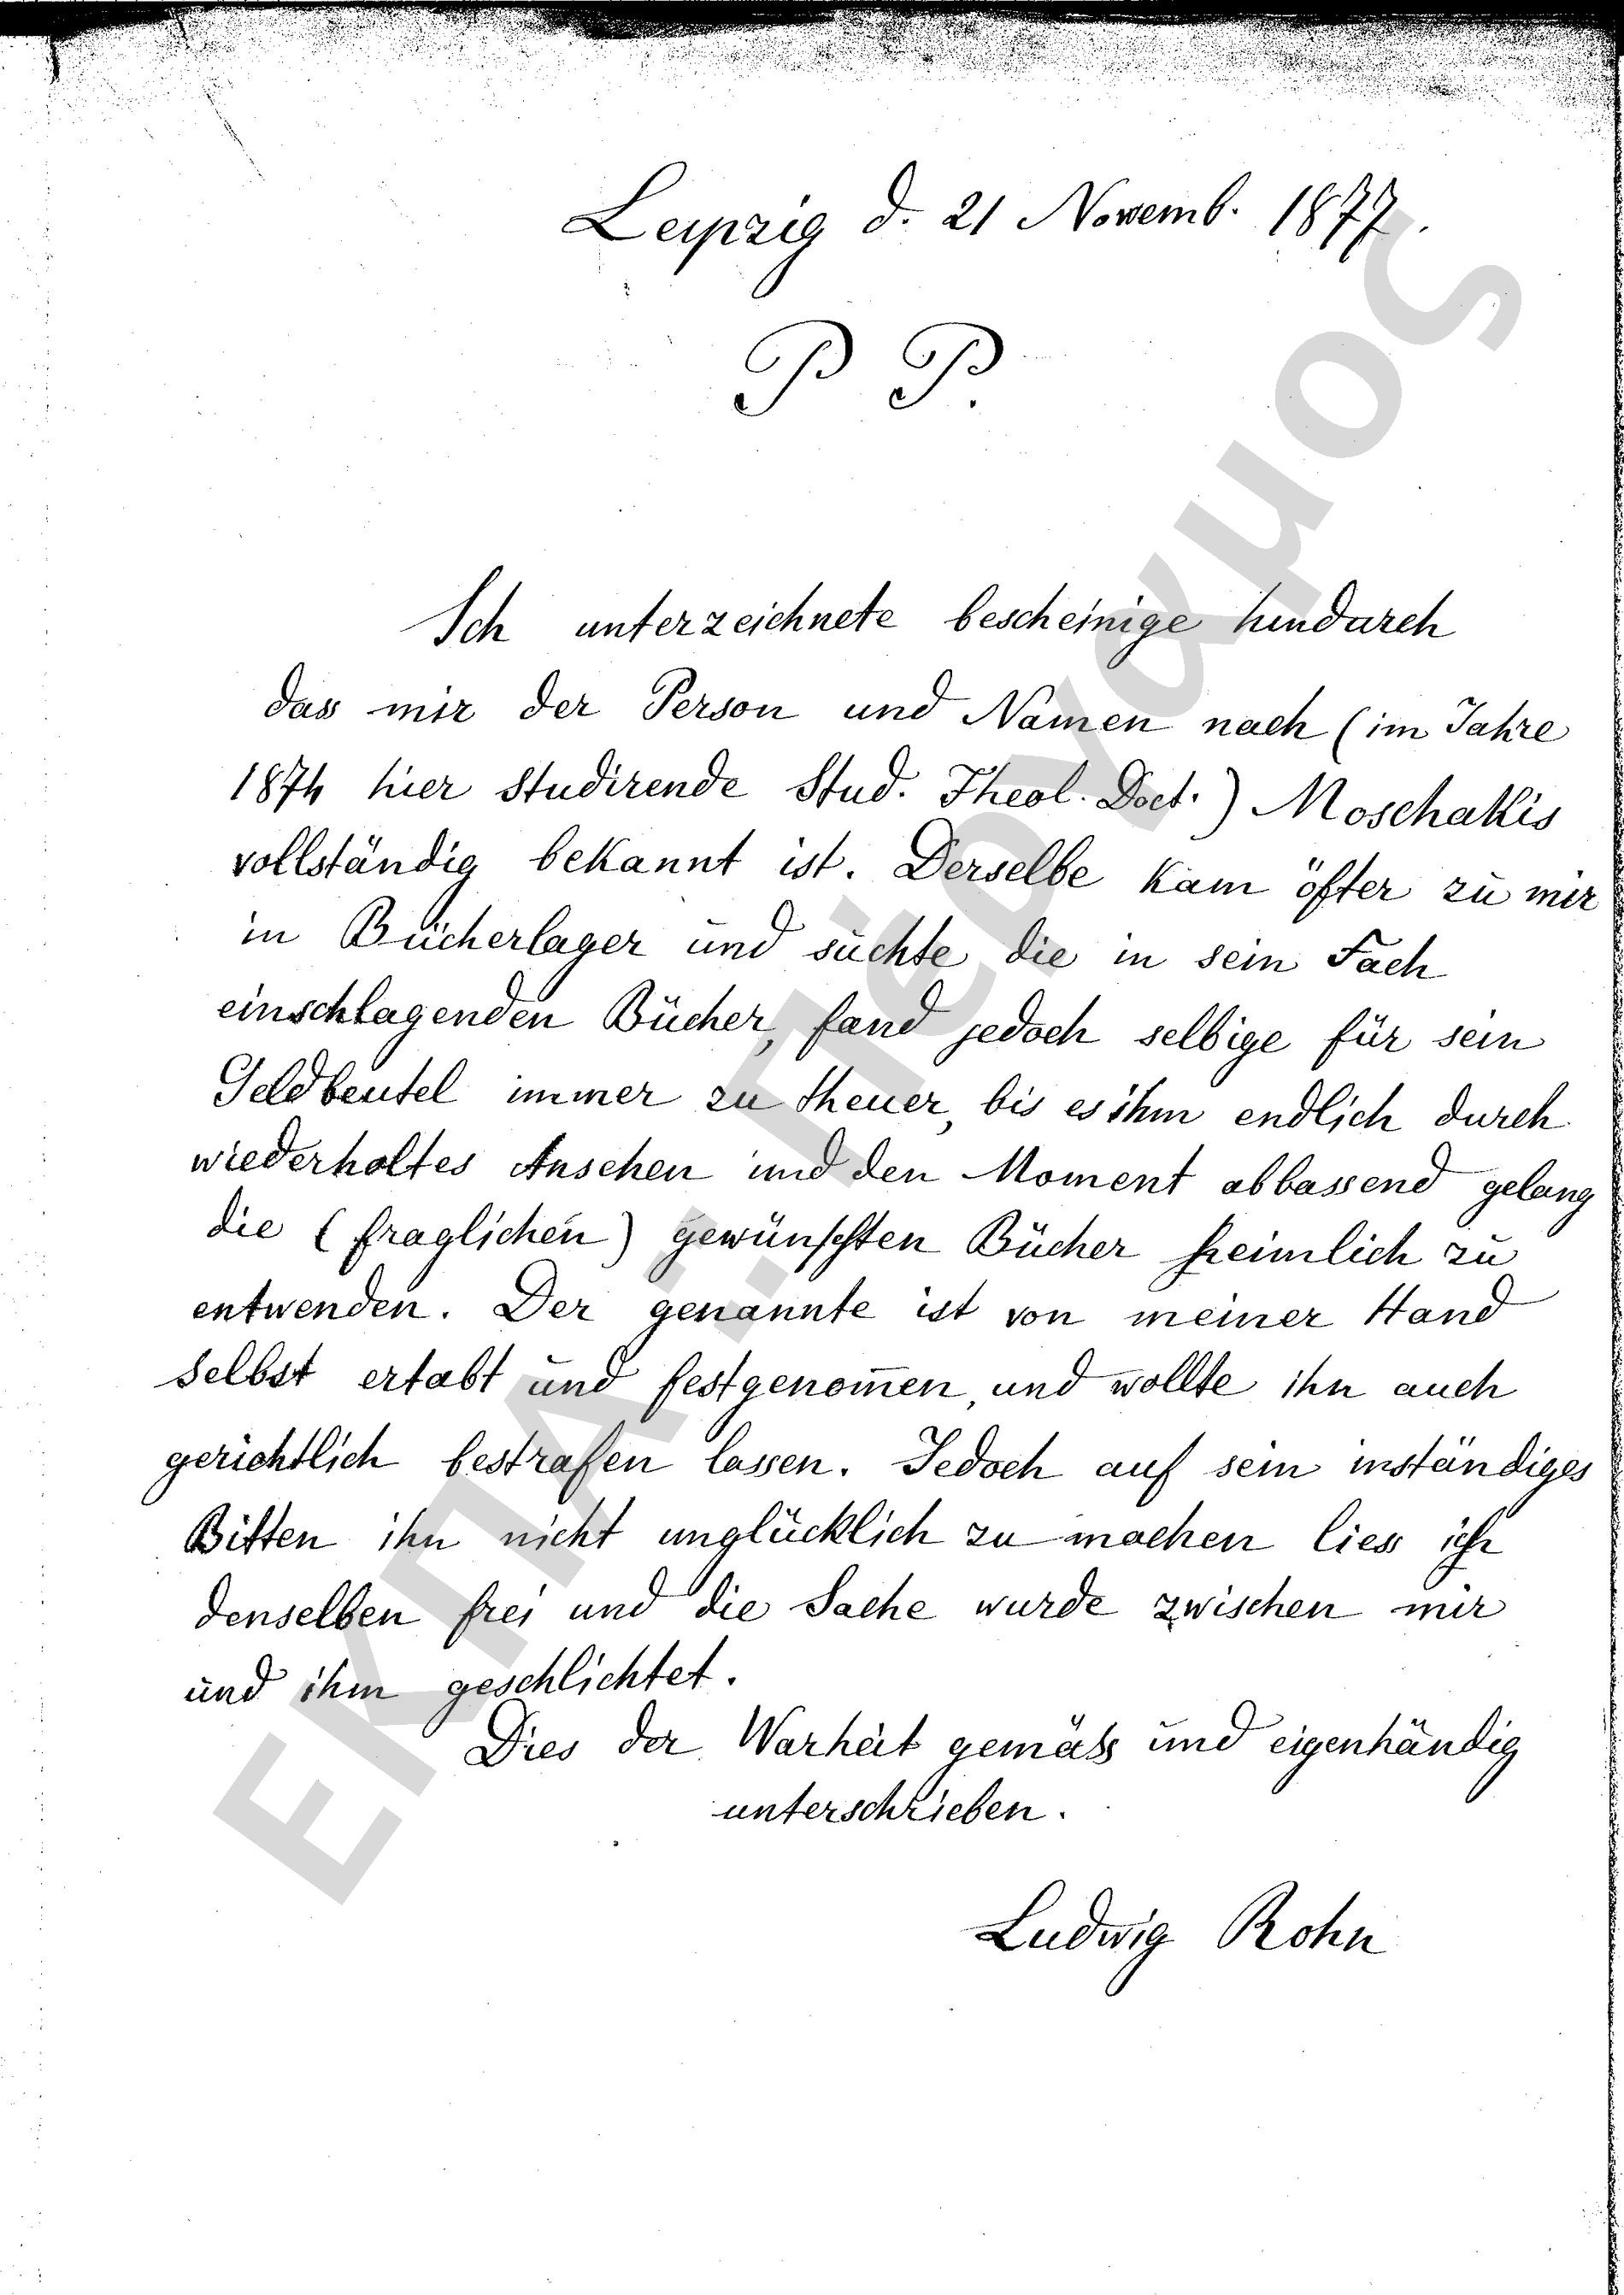 Leipzig d. 21 Novemb. 1877.
P P.
Ich unterzeichnete bescheinige hindurch
das mir der Person und Namen nach (im Jahre
1874 hier studirende Stud. Theol. Doct.) Moschakis
vollständig bekannt ist. Derselbe kam öfter zu mir
in Bücherlager und suchte die in sein Fach
einschlagenden Bücher, fand jedoch selbige für sein
Geldbeutel immer zu theuer, bis es ihm endlich durch
wiederholtes Ansehen und den Moment abbassend gelang
die (fraglichen) gewünschten Bücher heimlich zu
entwenden. Der genannte ist von meiner Hand
selbst ertabt und festgenom̄en, und wollte ihn auch
gerichtlich bestrafen lassen. Jedoch auf sein inständiges
Bitten ihn nicht unglücklich zu machen liess ich
denselben frei und die Sache wurde zwischen mir
und ihm geschlichtet.
Dies der Warheit gemäss und eigenhändig
unterschrieben.
Ludwig Rohn